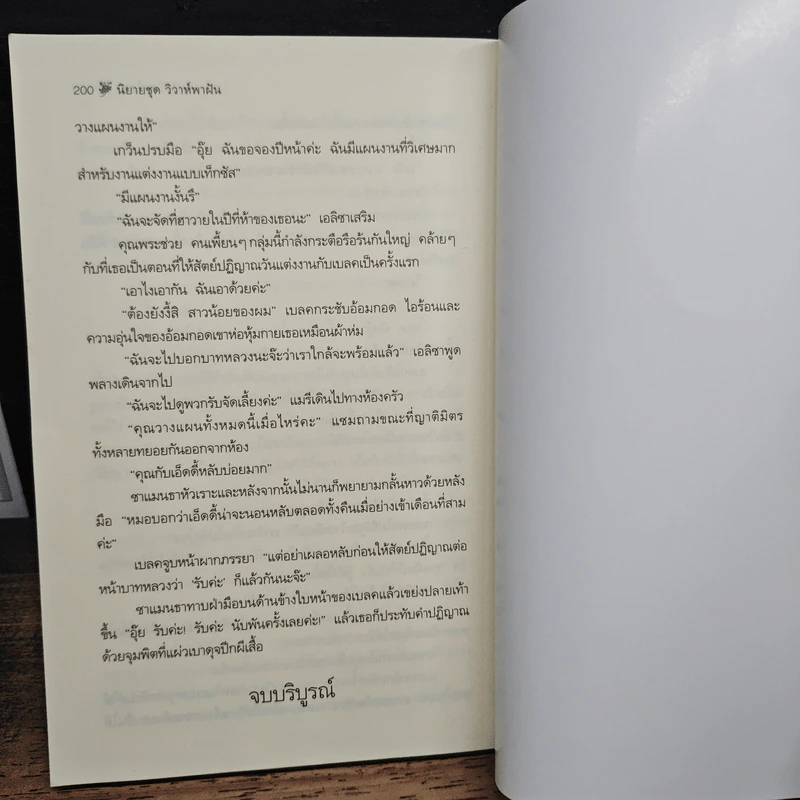 200 นิยายชุด วิวาห์พาฝัน
วางแผนงานให้"
เกว็นปรบมือ "อุ๊ย ฉันขอจองปีหน้าค่ะ ฉันมีแผนงานที่วิเศษมาก
สำหรับงานแต่งงานแบบเท็กซัส"
"มีแผนงานงั้นรึ"
"ฉันจะจัดที่ฮาวายในปีที่ห้าของเธอนะ" เอลิซาเสริม
คุณพระช่วย คนเพี้ยนๆ กลุ่มนี้กำลังกระตือรือร้นกันใหญ่ คล้ายๆ
กับที่เธอเป็นตอนที่ให้สัตย์ปฏิญาณวันแต่งงานกับเบลคเป็นครั้งแรก
"เอาไงเอากัน ฉันเอาด้วยค่ะ"
"ต้องยังงี้สิ สาวน้อยของผม" เบลคกระชับอ้อมกอด ไอร้อนและ
ความอุ่นใจของอ้อมกอดเขาห่อหุ้มกายเธอเหมือนผ้าห่ม
"ฉันจะไปบอกบาทหลวงนะจ๊ะว่าเราใกล้จะพร้อมแล้ว" เอลิซาพูด
พลางเดินจากไป
"ฉันจะไปดูพวกรับจัดเลี้ยงค่ะ" แมรีเดินไปทางห้องครัว
"คุณวางแผนทั้งหมดนี้เมื่อไหร่คะ" แซมถามขณะที่ญาติมิตร
ทั้งหลายทยอยกันออกจากห้อง
"คุณกับเอ็ดดี้หลับบ่อยมาก"
ซาแมนธาหัวเราะและหลังจากนั้นไม่นานก็พยายามกลั้นหาวด้วยหลัง
มือ "หมอบอกว่าเอ็ดดี้น่าจะนอนหลับตลอดทั้งคืนเมื่อย่างเข้าเดือนที่สาม
ค่ะ"
เบลคจูบหน้าผากภรรยา "แต่อย่าเผลอหลับก่อนให้สัตย์ปฏิญาณต่อ
หน้าบาทหลวงว่า 'รับค่ะ' ก็แล้วกันนะจ๊ะ"
ซาแมนธาทาบฝ่ามือบนด้านข้างใบหน้าของเบลคแล้วเขย่งปลายเท้า
ขึ้น "อุ๊ย รับค่ะ! รับค่ะ นับพันครั้งเลยค่ะ!" แล้วเธอก็ประทับคำปฏิญาณ
ด้วยจุมพิตที่แผ่วเบาดุจปีกผีเสื้อ
จบบริบูรณ์